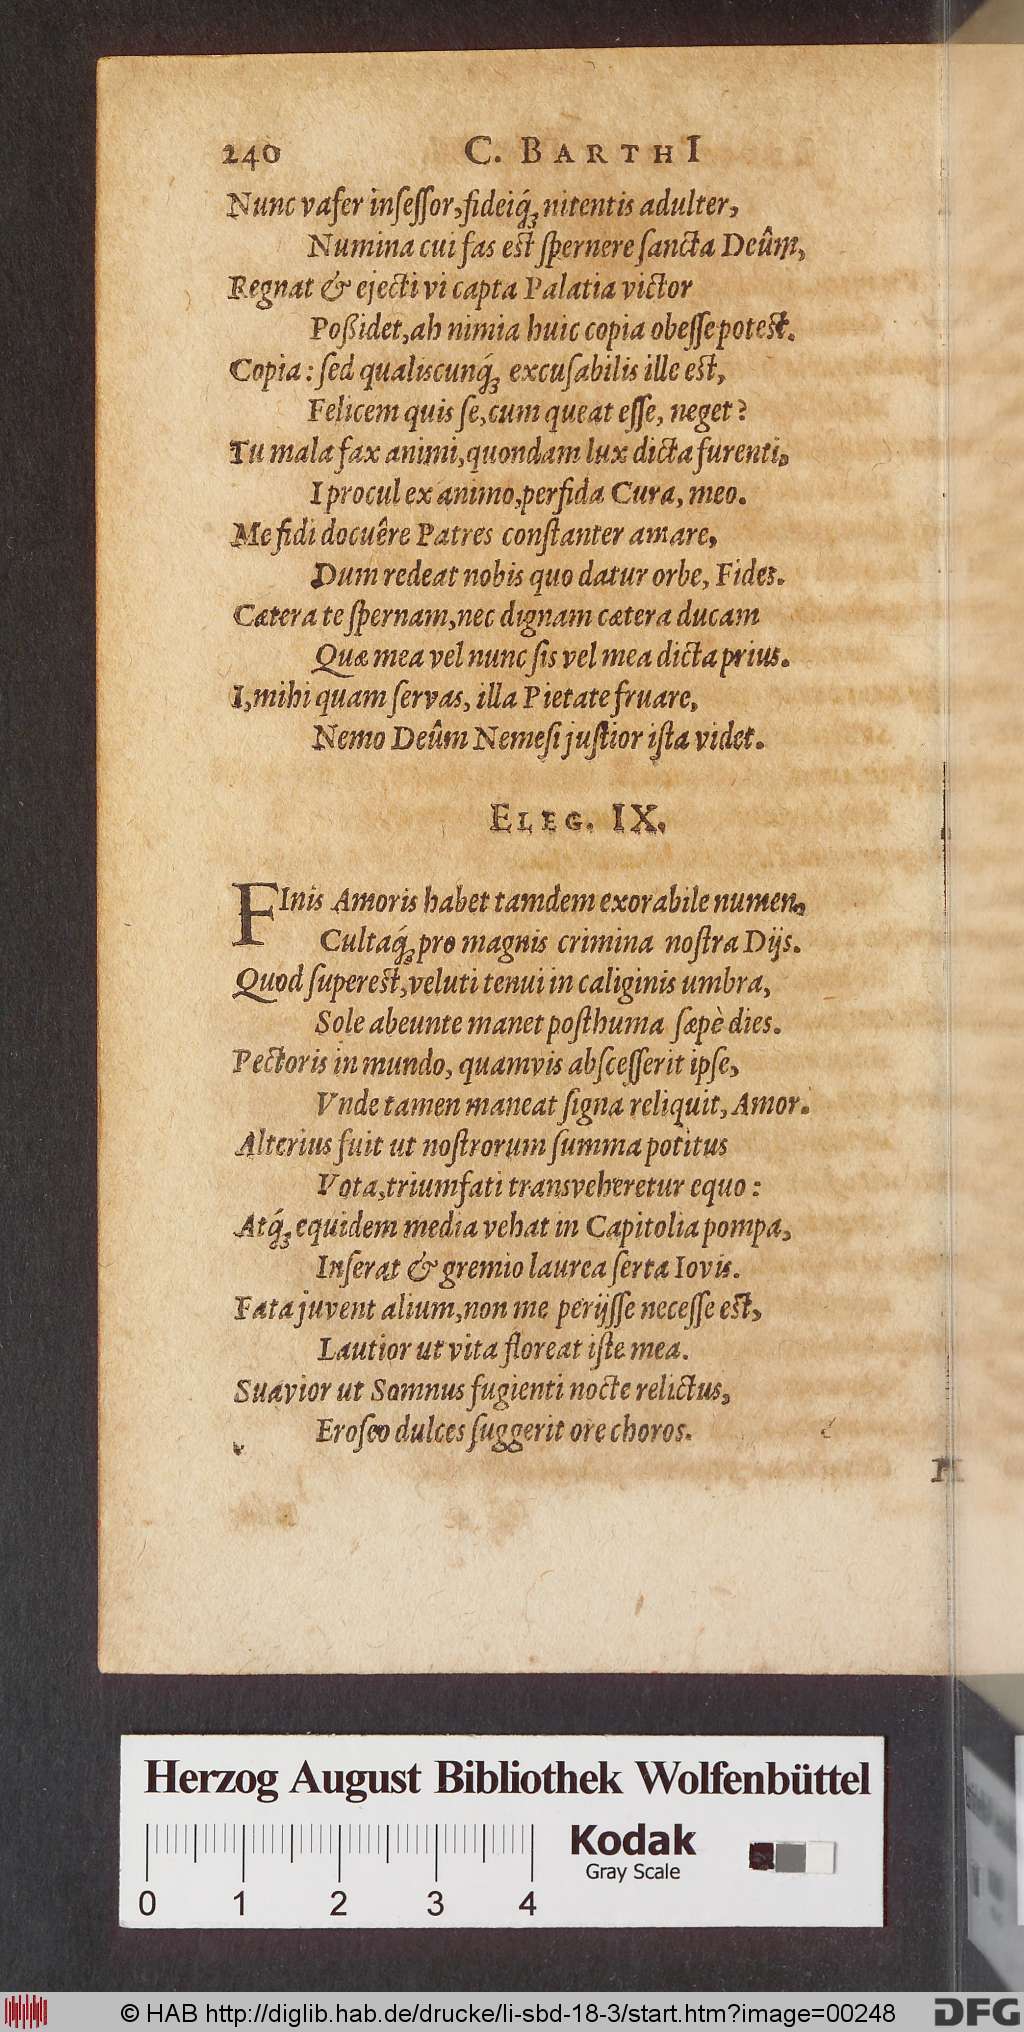 240 C. BARTHI
Nunc vafer inſeſſor, fideiq́ꝫ nitentis adulter,
Numina cui fas est ſpernere ſancta Deûm,
Regnat & ejecti vi capta Palatia victor
Poßidet, ah nimia huic copia obeſſe potest.
Copia: ſed qualiscunq́ꝫ excuſabilis ille est,
Felicem quis ſe, cum queat eſſe, neget?
Tu mala fax animi, quondam lux dicta furenti,
I procul ex animo, perfida Cura, meo.
Me fidi docuêre Patres conſtanter amare,
Dum redeat nobis quo datur orbe, Fides.
Cætera te ſpernam, nec dignam cætera ducam
Quæ mea vel nunc ſis vel mea dicta prius.
I, mihi quam ſervas, illa Pietate fruare,
Nemo Deûm Nemeſi juſtior iſta videt.
ELEG. IX.
FInis Amoris habet tamdem exorabile numen,
Cultaq́ꝫ pro magnis crimina noſtra Dijs.
Quod ſuperest, veluti tenui in caliginis umbra,
Sole abeunte manet poſthuma ſæpè dies.
Pectoris in mundo, quamvis abſceſſerit ipſe,
Vnde tamen maneat ſigna reliquit, Amor.
Alterius fuit ut noſtrorum ſumma potitus
Vota, triumfati transveheretur equo:
Atq́ꝫ equidem media vehat in Capitolia pompa,
Inſerat & gremio laurea ſerta Iovis.
Fata juvent alium, non me perijſſe neceſſe est,
Lautior ut vita floreat iſte mea.
Suavior ut Somnus fugienti nocte relictus,
Eroſeo dulces ſuggerit ore choros.
Herzog August Bibliothek Wolfenbüttel
Kodak
Gray Scale
0 1 2 3 4
© HAB http://diglib.hab.de/drucke/li-sbd-18-3/start.htm?image=00248 DFG